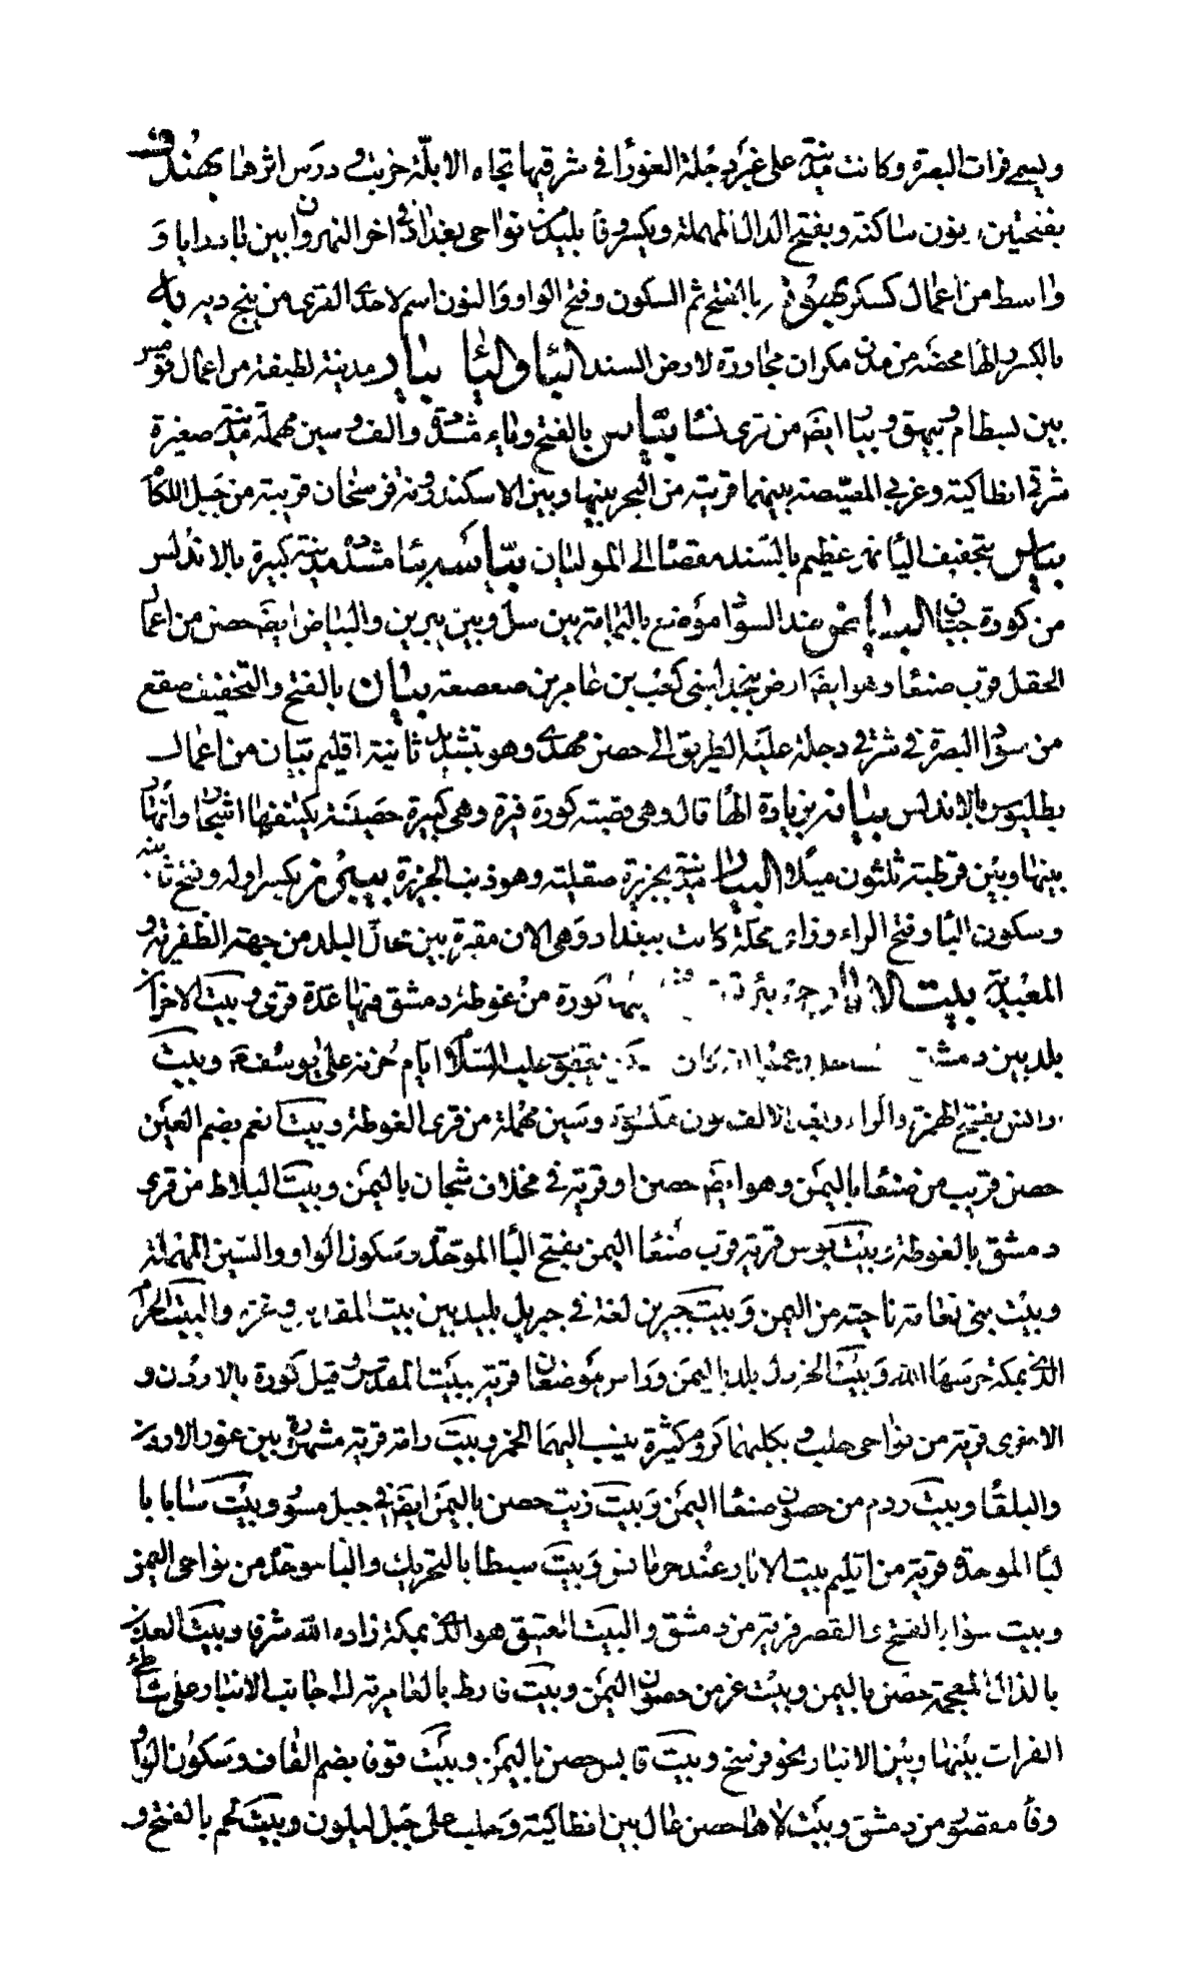 ويسمى فرات البصرة وكانت مدينة على غربي دجلة العوراء في شرقيها تجاه الابلة خربت ودرس اثرهما بهندف
بفتحتين ونون ساكنة وبفتح الدال المهملة وبكسر وفا بليدة من نواحي بغداد في اخر النهروان بين بادرايا و
واسط من اعمال كسكر بهونه بالفتح ثم السكون وفتح الواو والنون اسم لاحدى القرى من پنج ديه
بالكسر والها محضة من مدن مكران مجاورة لارض السند بيار مدينة لطيفة من اعمال قومس
بين بسطام وبيهق وبيار ايضا من قرى نسا بياس بالفتح وياء مشددة والف وسين مهملة مدينة صغيرة
شرقي انطاكية وغربي المصيصة بينهما قريبة من البحر بينها وبين الاسكندرونة فرسخان قريبة من جبل اللكام
بياس بتخفيف اليا نهر عظيم بالسند مفضا الى الموليان بياسه بيا مشددة مدينة كبيرة بالاندلس
من كورة جيان البياض ضد السواد موضع باليمامة بين سل وبين يبرين والبياض ايضا حصن من اعمال
الحقل قرب صنعا وهو ايضا ارض بنجد لبني كعب بن عامر بن صعصعة بيان بالفتح والتخفيف صقع
من سواد البصرة في شرقي دجلة عليه الطريق الى حصن مهدي وهو بتشديد ثانية اقليم بيان من اعمال
بطليوس بالاندلس بيانه بزيادة الها قال وهي قصبة كورة قبرة وهي كبيرة حصينة يكتنفها اشجار وانهار
بينها وبين قرطبة ثلثون ميلا البيان مدينة بجزيرة صقلية وهو ذنب الجزيرة بيبرز بكسر اوله وفتح ثانيه
وسكون اليا وفتح الراء وزاء محلة كانت ببغداد وهي الان مقبرة بين عمارات البلد من جهة الظفرية و
المقيدية بيت الابار جمع بئر قرية كورة من غوطة دمشق فيها عدة قرى وبيت الاحزان
بلد بين دمشق والساحل زعموا انه كان مسكن يعقوب عليه السلام ايام حزنه على يوسف وبيت
رانس بفتح الهمزة والراء وبعد الالف نون مكسورة وسين مهملة من قرى الغوطة وبيت انعم بضم العين
حصن قريب من صنعا باليمن وهو ايضا حصن او قرية في مخلاف سنحان باليمن وبيت البلاط من قرى
دمشق بالغوطة وبيت بوس قرية قرب صنعا اليمن بفتح البا الموحدة وسكون الواو والسين المهملة
وبيت بني نعامة ناحية من اليمن وبيت جبرين لغة في جبريل بليد بين بيت المقدس وغزه والبيت الحرام
الذي بمكة حرسها الله وبيت الخردل بلد باليمن وراس موضعان قرية ببيت المقدس وقيل كورة بالاردن و
الاخرى قرية من نواحي حلب وبكليهما كروم كثيرة ينسب اليهما الخمر وبيت رامة قرية مشهورة بين غور الاردن
والبلقا وبيت ردم من حصون صنعا اليمن وبيت زيت حصن باليمن ايضا في جبل مسور وبيت سابا با
لبا الموحدة قرية من اقليم بيت الابار عند جرمانس وبيت سبطا بالتحريك والبا موحدة من نواحي اليمن
وبيت سوا بالفتح والقصر قرية من دمشق والبيت العتيق هو الذي بمكة زاده الله شرفا وبيت العذن
بالذال المعجمة حصن باليمن وبيت عز من حصون اليمن وبيت فارط بالفا قرية الى جانب الانبار على شاطئ
الفرات بينها وبين الانبار نحو فرسخ وبيت قابس حصن باليمن وبيت قوفا بضم القاف وسكون الواو
وفا مقصور من دمشق وبيت لاها حصن عال بين انطاكية وحلب على جبل ليلون وبيت لحم بالفتح و